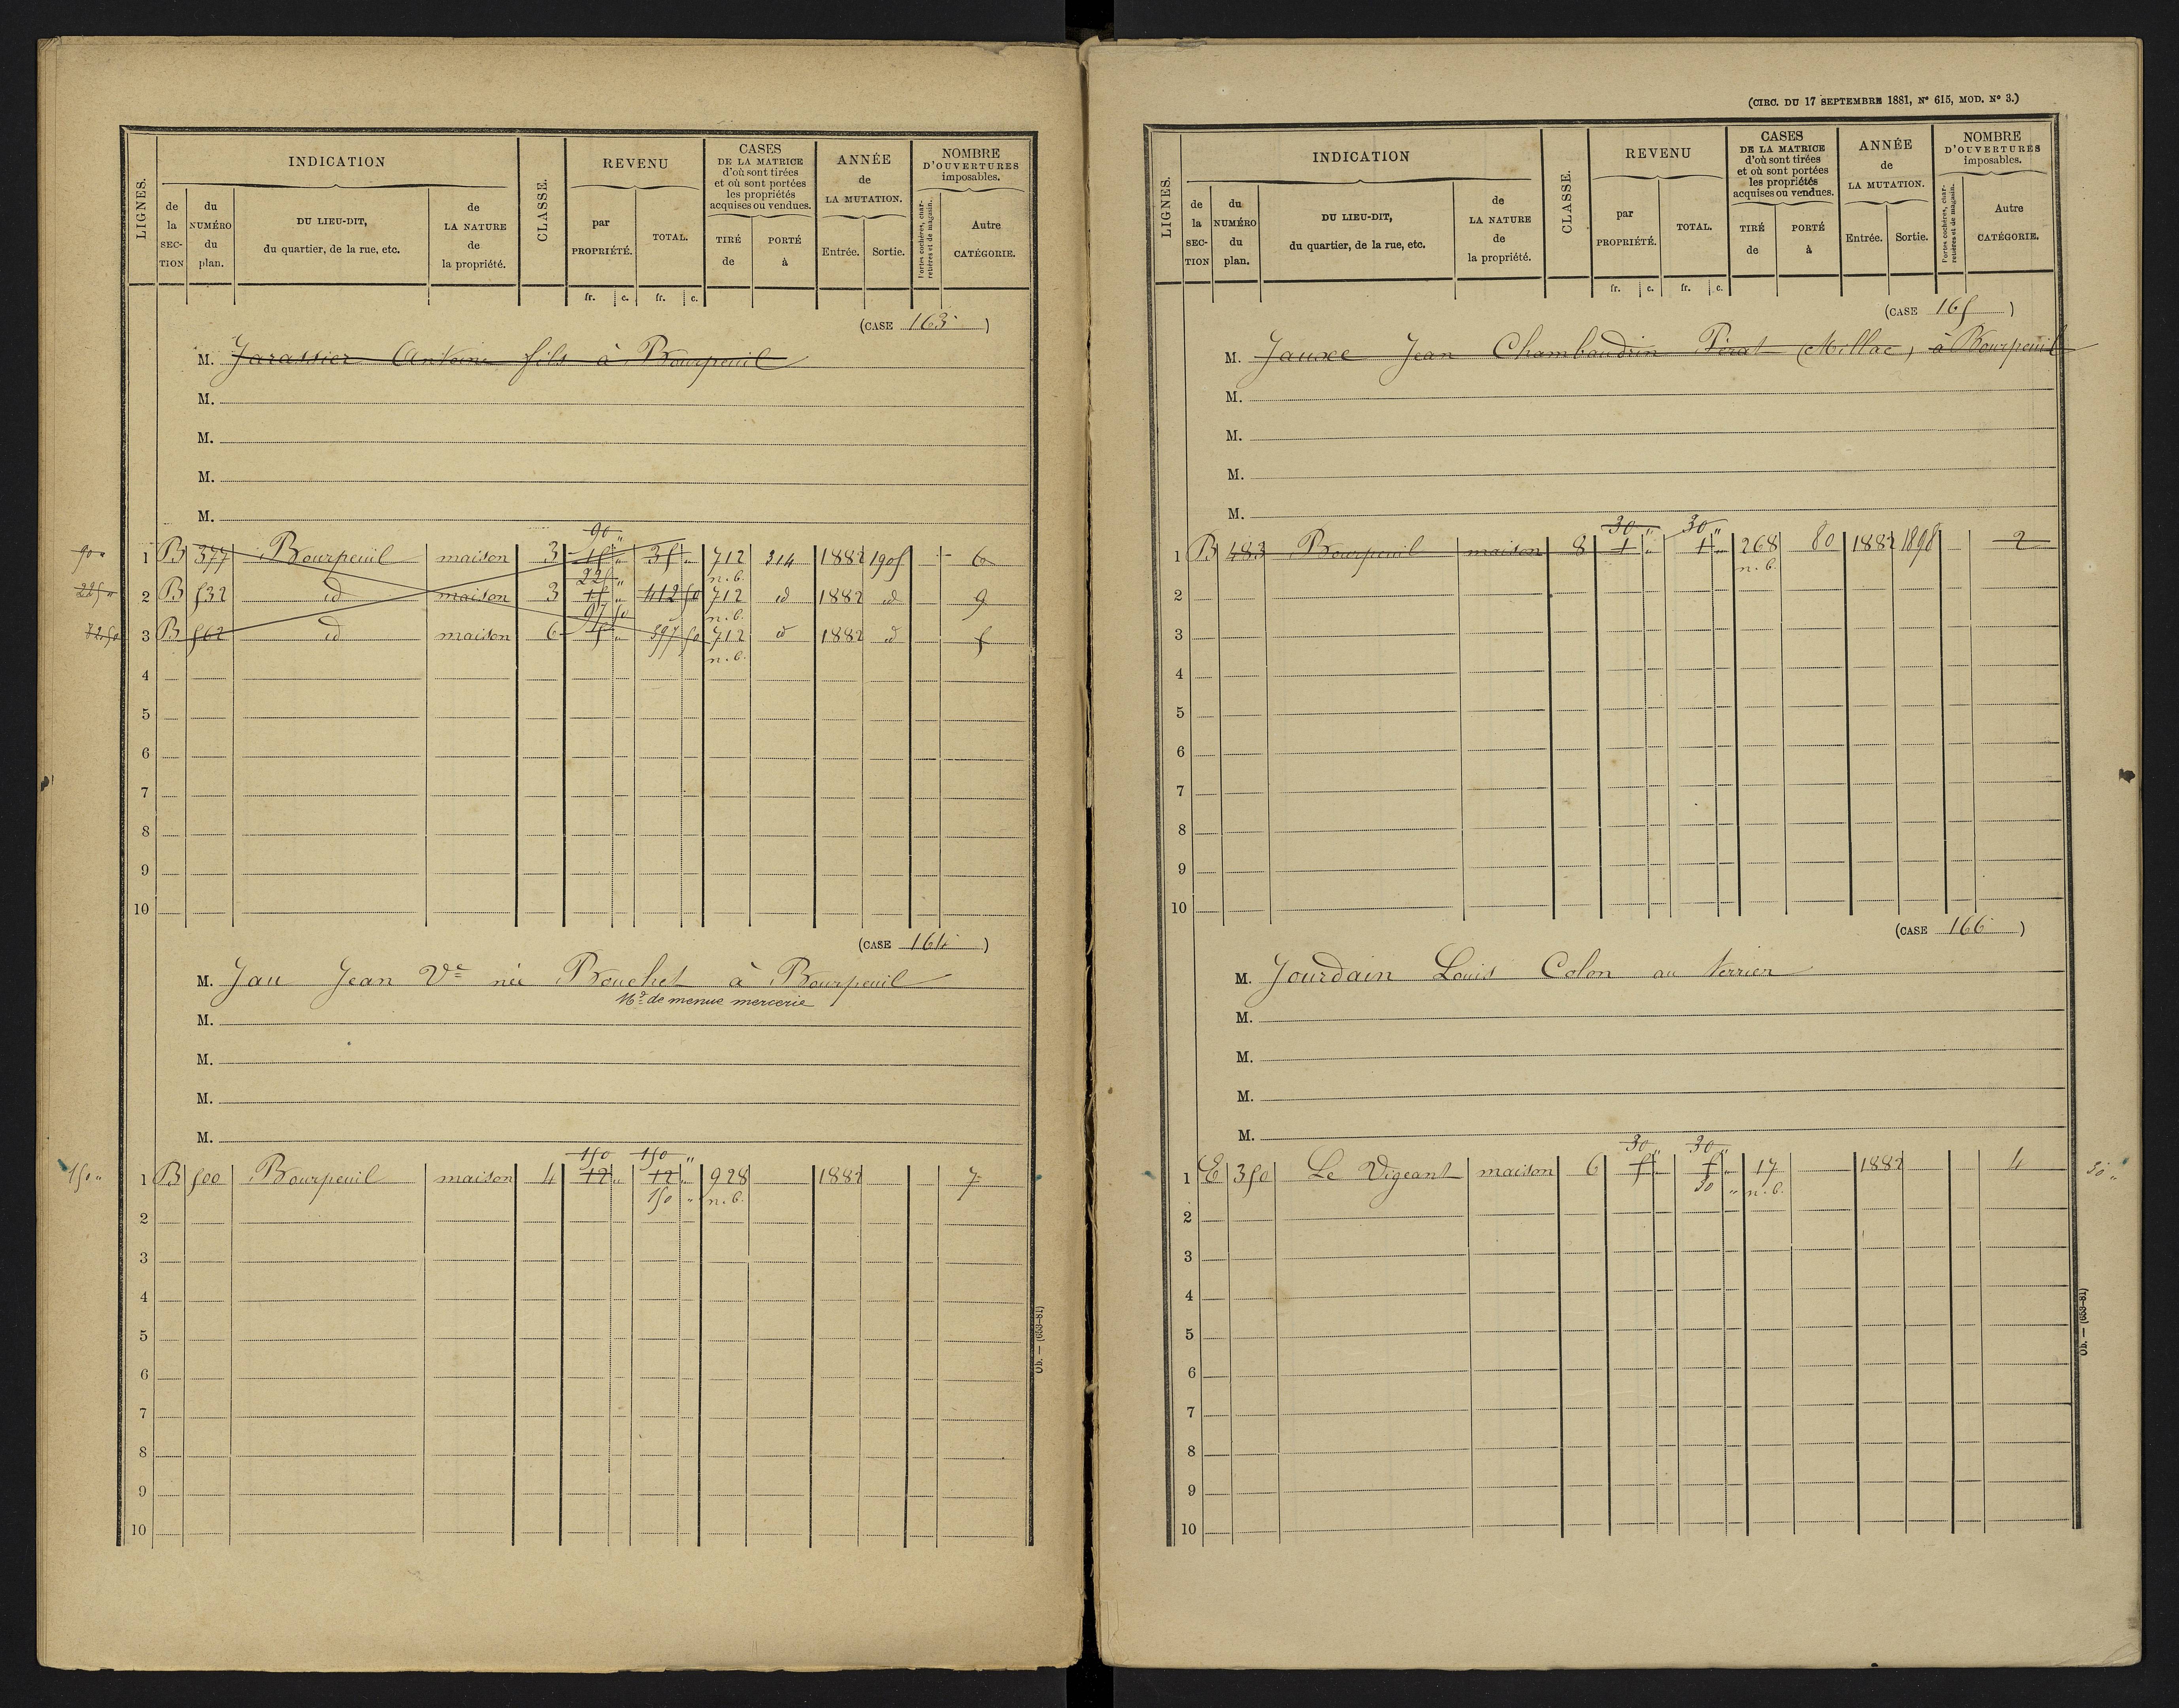 LIGNES.
INDICATION
de la SECTION
du NUMÉRO du plan.
DU LIEU-DIT, du quartier, de la rue, etc.
de LA NATURE de la propriété.
CLASSE.
REVENU
par PROPRIÉTÉ.
TOTAL.
fr. c. fr. c.
CASES DE LA MATRICE d'où sont tirées et où sont portées les propriétés acquises ou vendues.
TIRÉ de
PORTÉ à
ANNÉE de LA MUTATION.
Entrée. Sortie.
NOMBRE D'OUVERTURES imposables.
Portes cochères, charretières et de magasin.
Autre CATÉGORIE.
(CASE 163)
M. Jarassier Antoine fils à Bourpeuil
M.
M.
M.
M.
90 "
90 " 1 B 377 Bourpeuil maison 3 15 " 35 " 712 314 1882 1905 - 6
225 " n.b.
225 " 2 B 532 id maison 3 15 " 412 50 712 id 1882 id 9
97 50 n.b.
3 B 562 id maison 6 5 " 397 50 712 id 1882 id 5
n.b.
4
5
6
7
8
9
10
(CASE 164)
M. Jau Jean Ve née Bouchet à Bourpeuil
Mde de menue mercerie
M.
M.
M.
M.
150 150 "
150 " 1 B 500 Bourpeuil maison 4 12 " 12 " 928 1882 7
150 " n.b.
2
3
4
5
6
7
8
9
10
Ob. — (653-81)
(CIRC. DU 17 SEPTEMBRE 1881, N° 615, MOD. N° 3.)
LIGNES.
INDICATION
de la SECTION
du NUMÉRO du plan.
DU LIEU-DIT, du quartier, de la rue, etc.
de LA NATURE de la propriété.
CLASSE.
REVENU
par PROPRIÉTÉ.
TOTAL.
fr. c. fr. c.
CASES DE LA MATRICE d'où sont tirées et où sont portées les propriétés acquises ou vendues.
TIRÉ de
PORTÉ à
ANNÉE de LA MUTATION.
Entrée. Sortie.
NOMBRE D'OUVERTURES imposables.
Portes cochères, charretières et de magasin.
Autre CATÉGORIE.
(CASE 165)
M. Jean Chambaudrin Périat (Millac) à Bourpeuil
M.
M.
M.
M.
30 " 30 "
1 B 483 Bourpeuil maison 8 1 " 1 " 268 80 1882 1898 2
n.b.
2
3
4
5
6
7
8
9
10
(CASE 166)
M. Jourdain Louis Colon au terrier
M.
M.
M.
M.
30 " 30 "
1 E 350 Le Vigeant maison 6 5 " 5 " 17 1882 4 30 "
30 " n.b.
2
3
4
5
6
7
8
9
10
Ob. — (653-81)